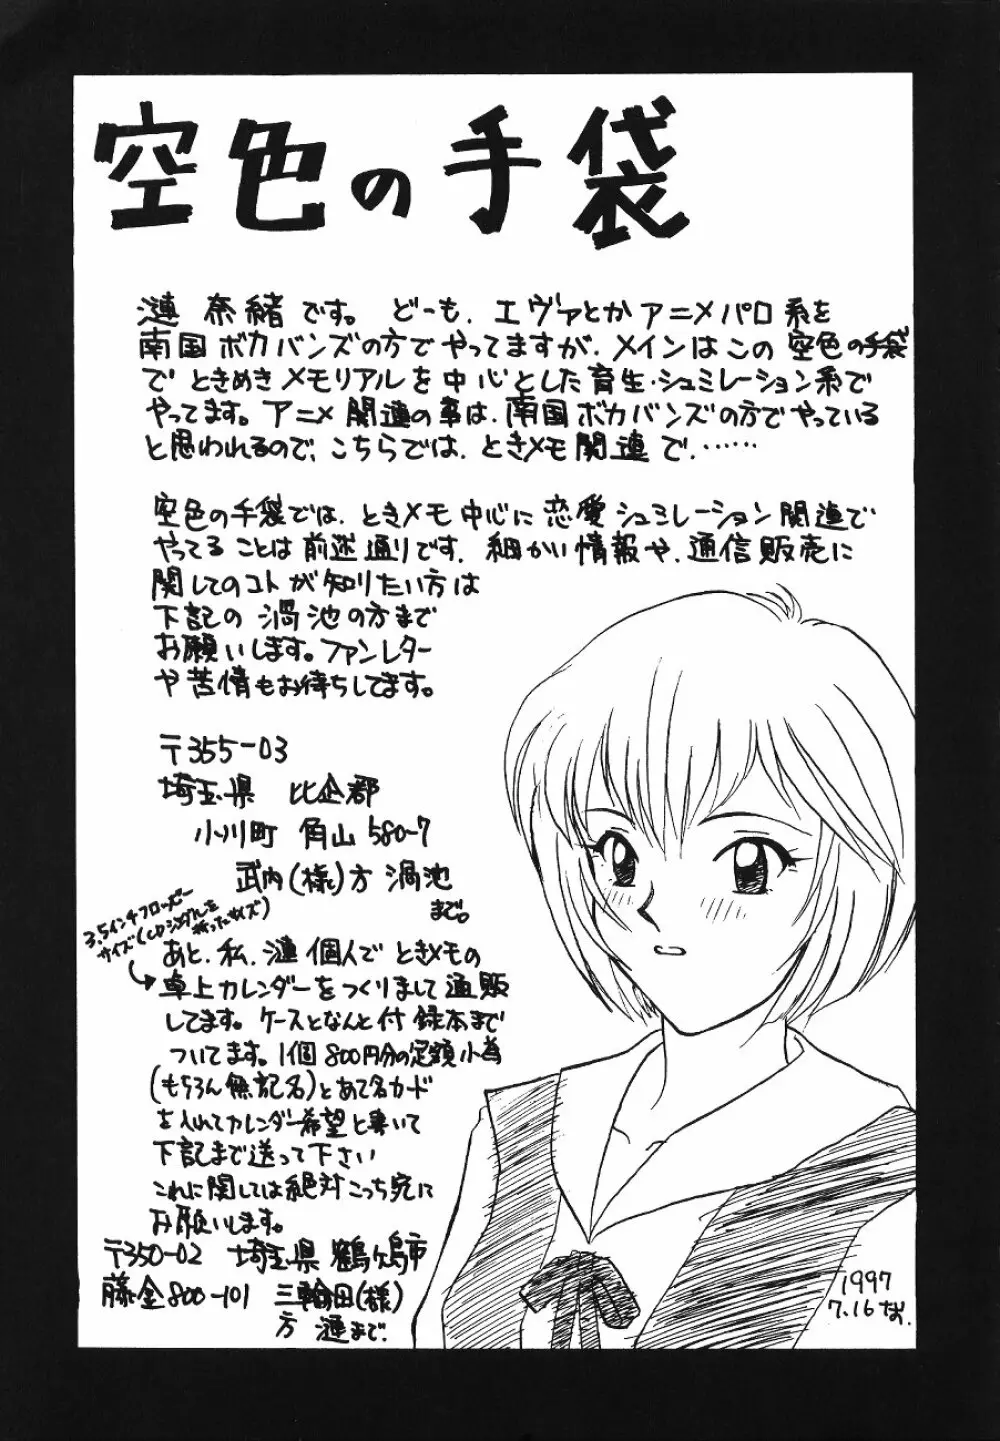 空色の手袋
漣 奈緒です。 どーも、エヴァとかアニメパロ系を
南国ボカバンズの方でやってますが、メインはこの 空色の手袋
で ときめきメモリアルを中心とした育生・シュミレーション系で
やってます。アニメ関連の事は、南国ボカバンズの方でやっている
と思われるので、こちらでは、ときメモ関連で、……
空色の手袋では、ときメモ中心に恋愛シュミレーション関連で
やってることは前述通りです。細かい情報や、通信販売に
関してのコトが知りたい方は
下記の 渦池の方まで
お願いします。ファンレター
や苦情もお待ちしてます。
〒355-03
埼玉県 比企郡
小川町 角山580-7
武内(様)方 渦池
まで。
3.5インチフロッピー
サイズ(CDシングルを
折ったサイズ)
あと、私、漣 個人で ときメモの
卓上カレンダーをつくりまして通販
してます。ケースとなんと付録本まで
ついてます。1個800円分の定額小為
(もちろん無記名)とあて名カード
を入れてカレンダー希望と書いて
下記まで送って下さい
これに関しては絶対こっち宛に
お願いします。
〒350-02 埼玉県 鶴ヶ島市
藤金800-101 三輪田(様)
方 漣まで。
1997
7.16 なお.